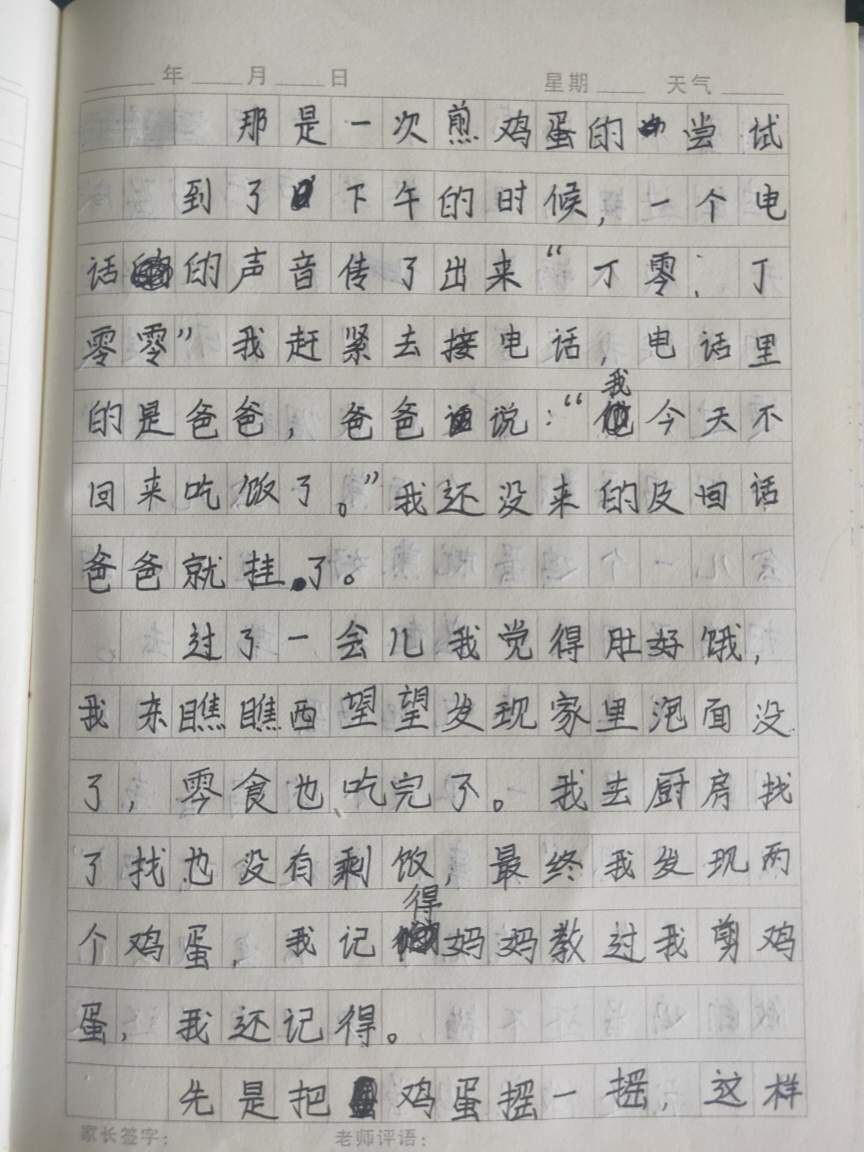 年 月 日 星期 天气
那是一次煎鸡蛋的尝试
到了下午的时候，一个电
话的声音传了出来“丁零、丁
零零”我赶紧去接电话，电话里
的是爸爸，爸爸说：“我今天不
回来吃饭了。”我还没来的及回话
爸爸就挂了。
过了一会儿我觉得肚好饿，
我东瞧瞧西望望发现家里泡面没
了，零食也、吃完了。我去厨房找
了找也没有剩饭，最终我发现两
个鸡蛋，我记得妈妈教过我剪鸡
蛋，我还记得。
先是把鸡蛋摇一摇，这样
家长签字： 老师评语：